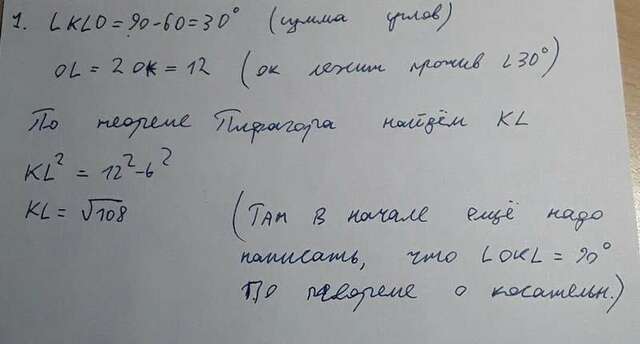 1. ∠KLO = 90-60=30° (сумма углов)
OL = 2 OK = 12 (OK лежит против ∠30°)
По теореме Пифагора найдём KL
KL² = 12²-6²
KL = √108 (Там в начале ещё надо
написать, что ∠OKL = 90°
По теореме о касательн.)